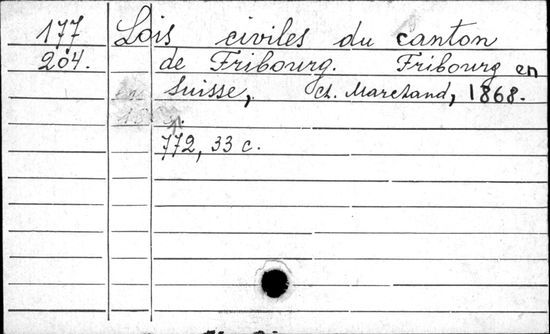 177 Lois civiles du canton
204. de Fribourg. Fribourg en
Suisse, Ch. Marchand, 1868.
772, 33 c.